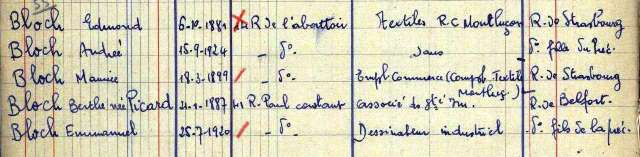 Bloch Edmond 6-10-1881 R. de l'abattoir Textiles R.C Montluçon R. de Strasbourg
Bloch Andrée 15-9-1924 - d° sans - d° fille du Préc.
Bloch Maurice 18-3-1899 - d° Empl. Commerce (Compt. Textile Montluç.) R. de Strasbourg
Bloch Berthe née Picard 21-1-1887 41 R. Paul constant associée de R. de Belfort.
Bloch Emmanuel 25-7-1920 - d° Dessinateur industriel - d° fils de la préc.